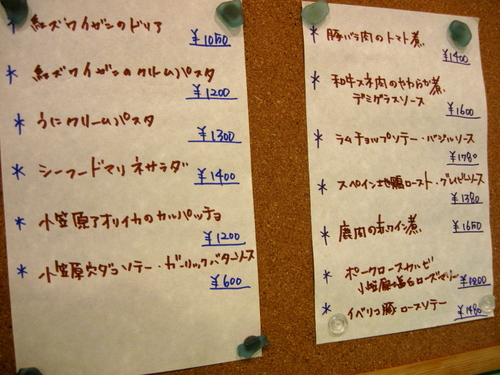 紅ズワイガニのドリア
¥1050
* 紅ズワイガニのクリームパスタ
¥1200
* うにクリームパスタ
¥1300
* シーフードマリネサラダ
¥1400
* 小笠原アオリイカのカルパッチョ
¥1200
* 小笠原穴ダコソテー・ガーリックバターソース
¥600
* 豚バラ肉のトマト煮
¥1400
* 和牛スネ肉のやわらか煮
デミグラスソース
¥1600
* ラムチョップソテー・バジルソース
¥1780
* スペイン地鶏ロースト・グレイビーソース
¥1380
* 鹿肉の赤ワイン煮
¥1650
* ポークロースカルビ
小笠原
¥1200
* イベリコ豚ロースソテー
¥1480